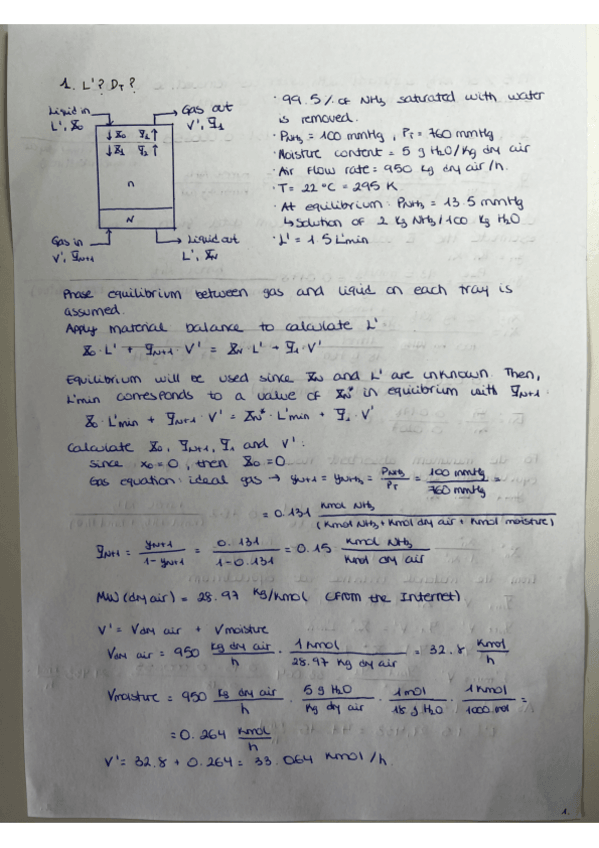 1. L'? D_T?
Liquid in
L', X̄₀
Gas out
V', Ȳ₁
↓X̄₀ Ȳ₁↑
↓X̄₁ Ȳ₂↑
n
N
Gas in
V', Ȳ_N+1
Liquid out
L', X̄_N
· 99.5 % of NH₃ saturated with water
is removed.
· P_NH₃ = 100 mmHg, P_T = 760 mmHg
· Moisture content = 5 g H₂O/kg dry air
· Air flow rate = 950 kg dry air/h.
· T = 22 °C = 295 K
· At equilibrium: P_NH₃ = 13.5 mmHg
↳ solution of 2 kg NH₃/100 kg H₂O
· L' = 1.5 L'min
Phase equilibrium between gas and liquid on each tray is
assumed.
Apply material balance to calculate L'
X̄₀ · L' + Ȳ_N+1 · V' = X̄_N · L' + Ȳ₁ · V'
Equilibrium will be used since X̄_N and L' are unknown. Then,
L'min corresponds to a value of X̄_N* in equilibrium with Ȳ_N+1.
X̄₀ · L'min + Ȳ_N+1 · V' = X̄_N* · L'min + Ȳ₁ · V'
Calculate X̄₀, Ȳ_N+1, Ȳ₁ and V':
since x₀ = 0, then X̄₀ = 0
Gas equation: ideal gas → y_N+1 = y_NH₃ = P_NH₃/P_T = 100 mmHg/760 mmHg =
= 0.131 kmol NH₃/(kmol NH₃ + kmol dry air + kmol moisture)
Ȳ_N+1 = y_N+1/(1 - y_N+1) = 0.131/(1 - 0.131) = 0.15 kmol NH₃/kmol dry air
MW (dry air) = 28.97 kg/kmol (from the Internet)
V' = V dry air + V moisture
V dry air = 950 kg dry air/h · 1 kmol/28.97 kg dry air = 32.8 kmol/h
V moisture = 950 kg dry air/h · 5 g H₂O/kg dry air · 1 mol/18 g H₂O · 1 kmol/1000 mol =
= 0.264 kmol/h
V' = 32.8 + 0.264 = 33.064 kmol/h.
1.